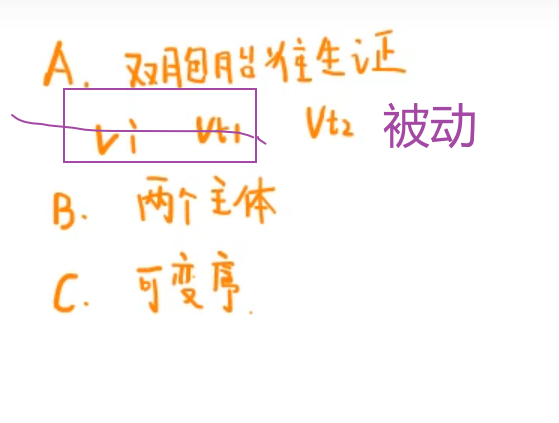 A. 双胞胎准生证
vi vt1 vt2 被动
B. 两个主体
C. 可变序.